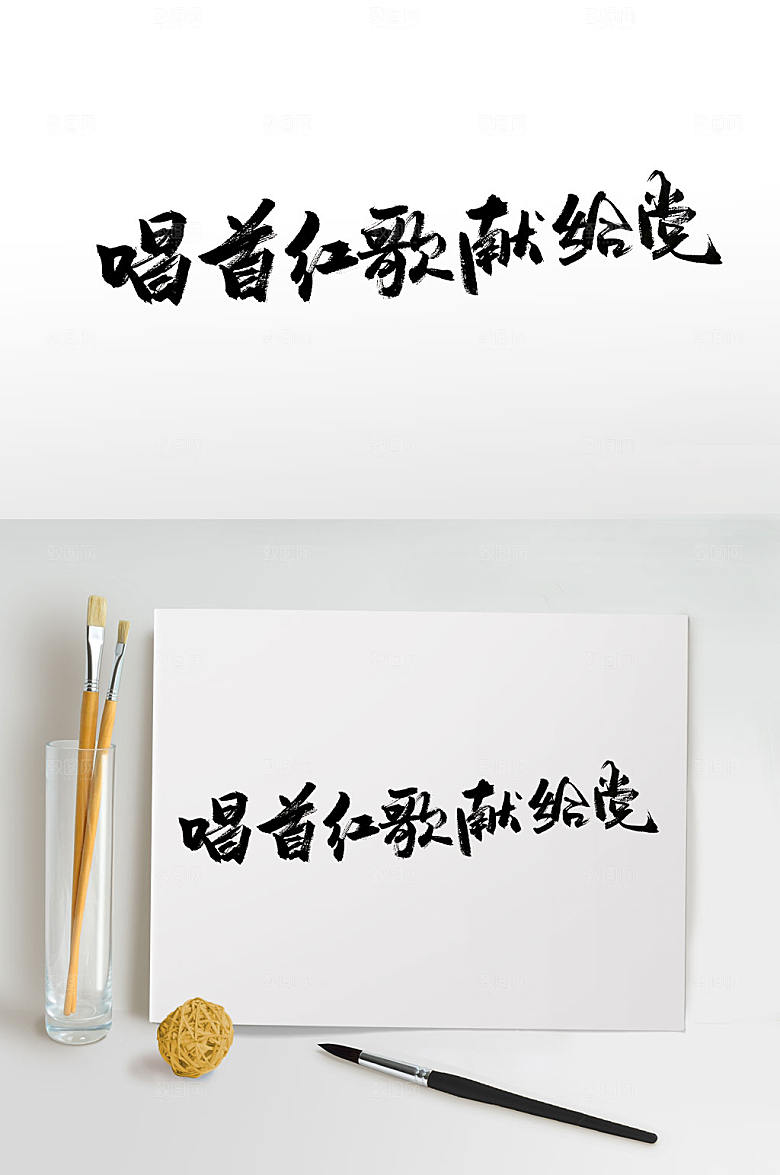 唱首红歌献给党
唱首红歌献给党